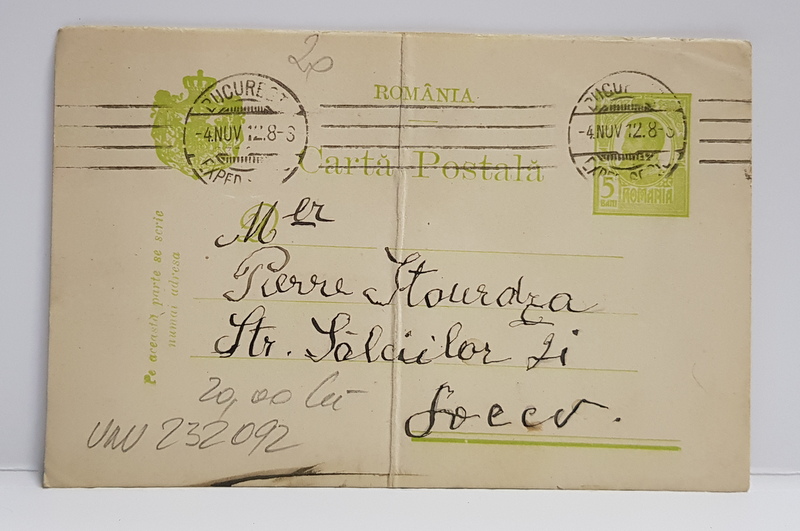 20
BUCUREST
-4.NOV 12.8-S
EXPED
ROMÂNIA
Carta Postală
BUCUR
-4.NOV 12.8-S
5
BANI
ROMANIA
Pe această parte se scrie
numai adresa
Mer
Pierre Stourdza
Str. Sălciilor 2i
Loccv.
20,00 lei
UNU 232092